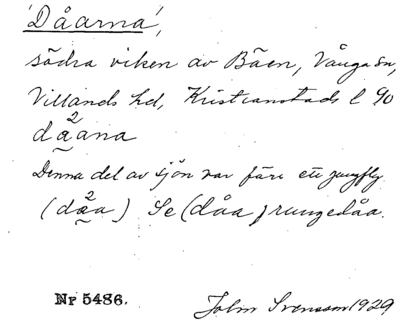 'Dåarna',
södra viken av Bäen, Vånga sn,
Villands hd, Kristianstads l 90
då²ana
Denna del av sjön var förr ett gungfly
(då²a) Se (dåa,) rungedåa.
Nr 5486.
John Svensson 1929